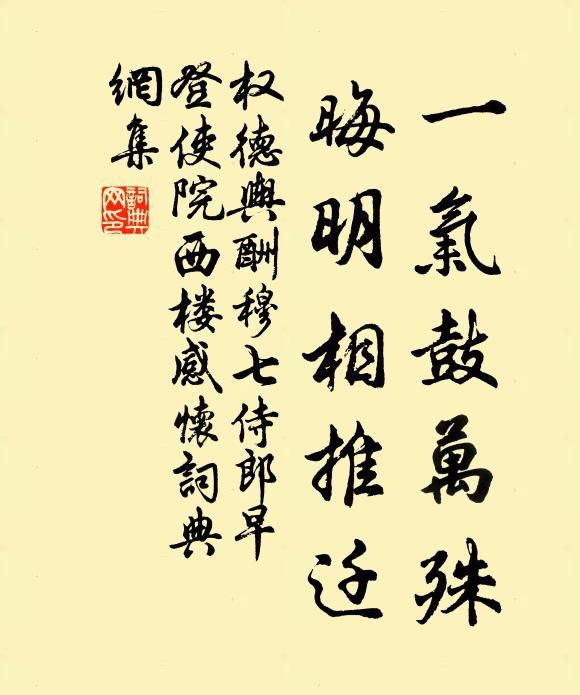 一氣鼓萬殊
晦明相推迁
权德輿酬穆七侍郎早
登使院西楼感懷詞典
網集
詞典
网印